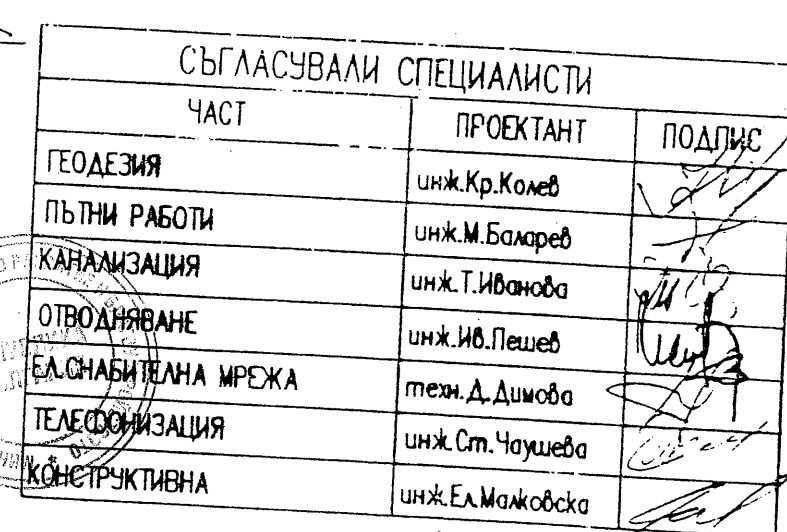 СЪГЛАСУВАЛИ СПЕЦИАЛИСТИ
ЧАСТ ПРОЕКТАНТ ПОДПИС
ГЕОДЕЗИЯ инж.Кр.Колев
ПЪТНИ РАБОТИ инж.М.Баларев
КАНАЛИЗАЦИЯ инж.Т.Иванова
ОТВОДНЯВАНЕ инж.Ив.Пешев
ЕЛ.СНАБИТЕЛНА МРЕЖА техн.Д.Димова
ТЕЛЕФОНИЗАЦИЯ инж.Ст.Чаушева
КОНСТРУКТИВНА инж.Ел.Малковска